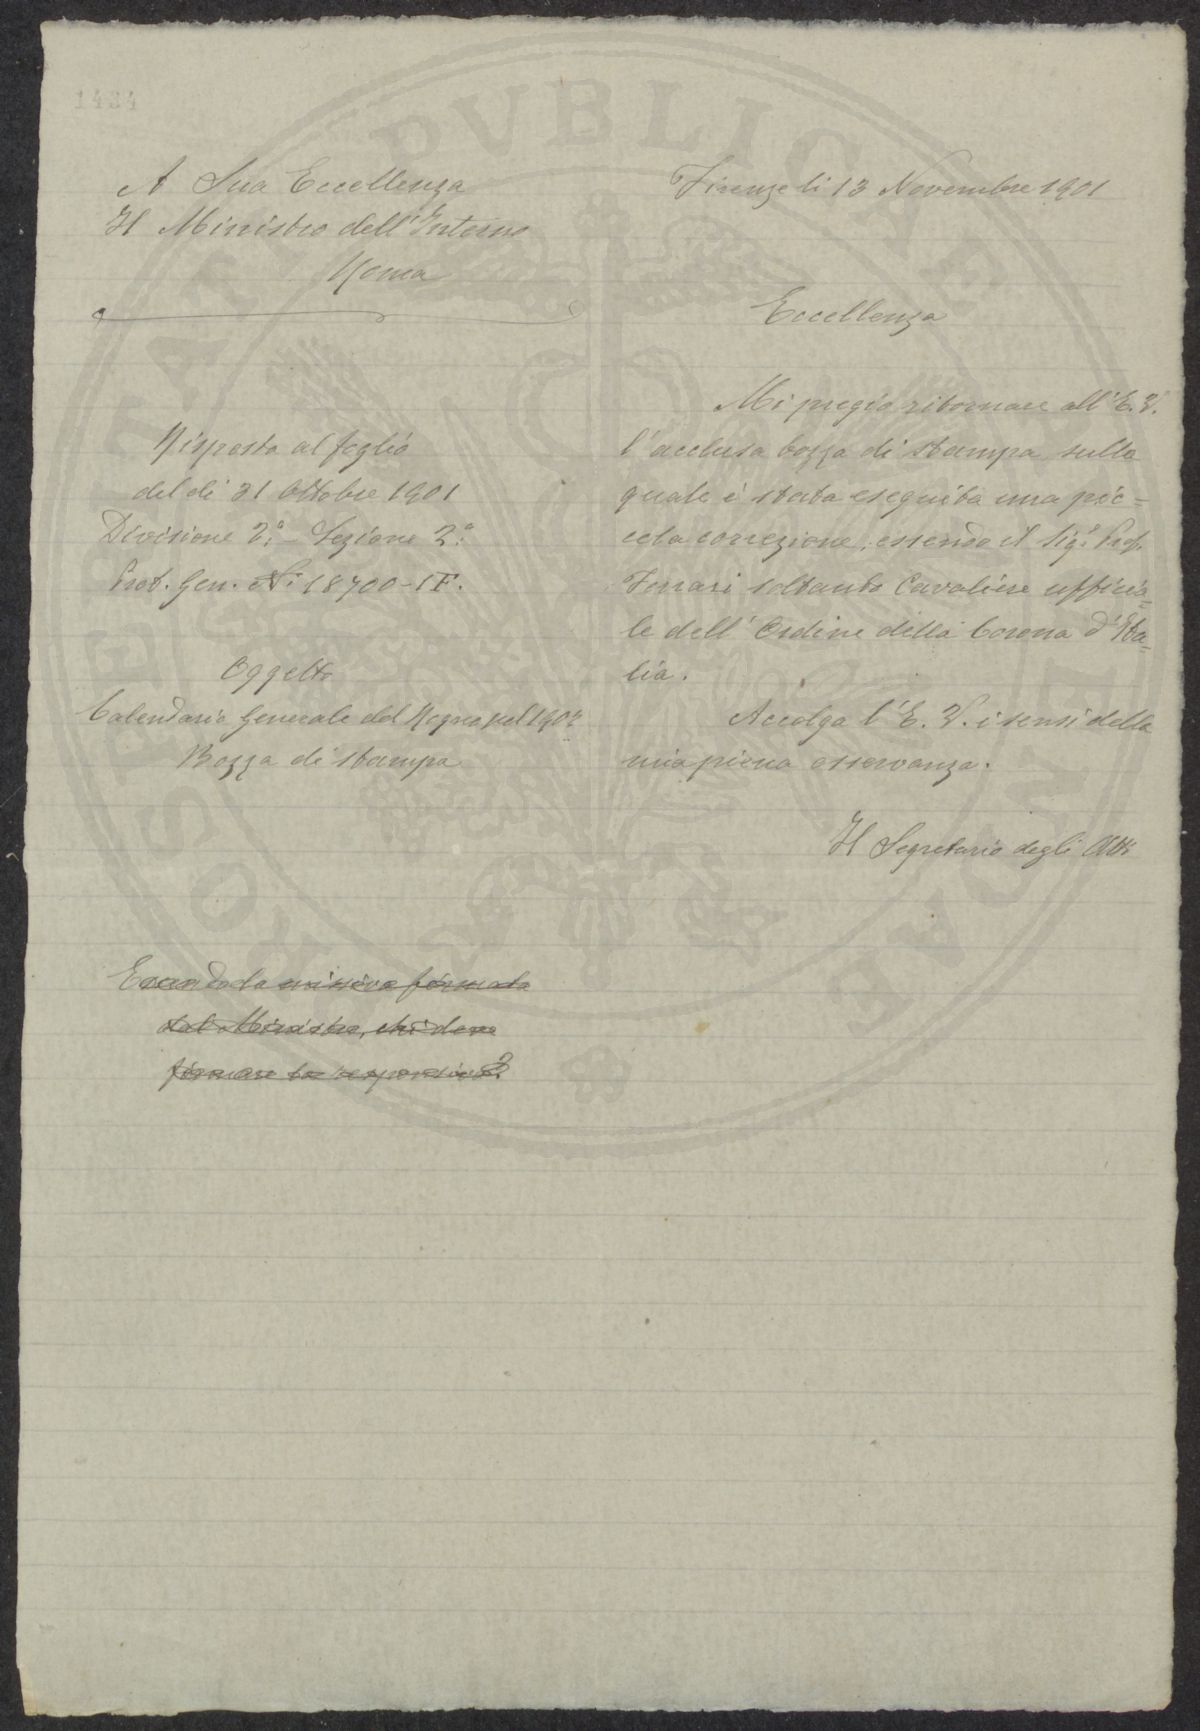 1434
A Sua Eccellenza
Il Ministro dell'Interno
Roma
Firenze li 13 Novembre 1901
Eccellenza
Risposta al foglio
del di 31 Ottobre 1901
Divisione 2ª - Sezione 2ª
Prot. Gen. N. 18700-1F.
Oggetto
Calendario Generale del Regno pel 1902
Bozza di stampa
Mi pregio ritornare all'E.V.
l'acclusa bozza di stampa sulla
quale è stata eseguita una pic=
cola correzione, essendo il Sigr. Prof.
Ferrari soltanto Cavaliere ufficia=
le dell'Ordine della Corona d'Ita=
lia.
Accolga l'E.V. i sensi della
mia piena osservanza.
Il Segretario degli Atti
Essendo la missiva firmata
dal Ministro, chi deve
firmare la responsiva?